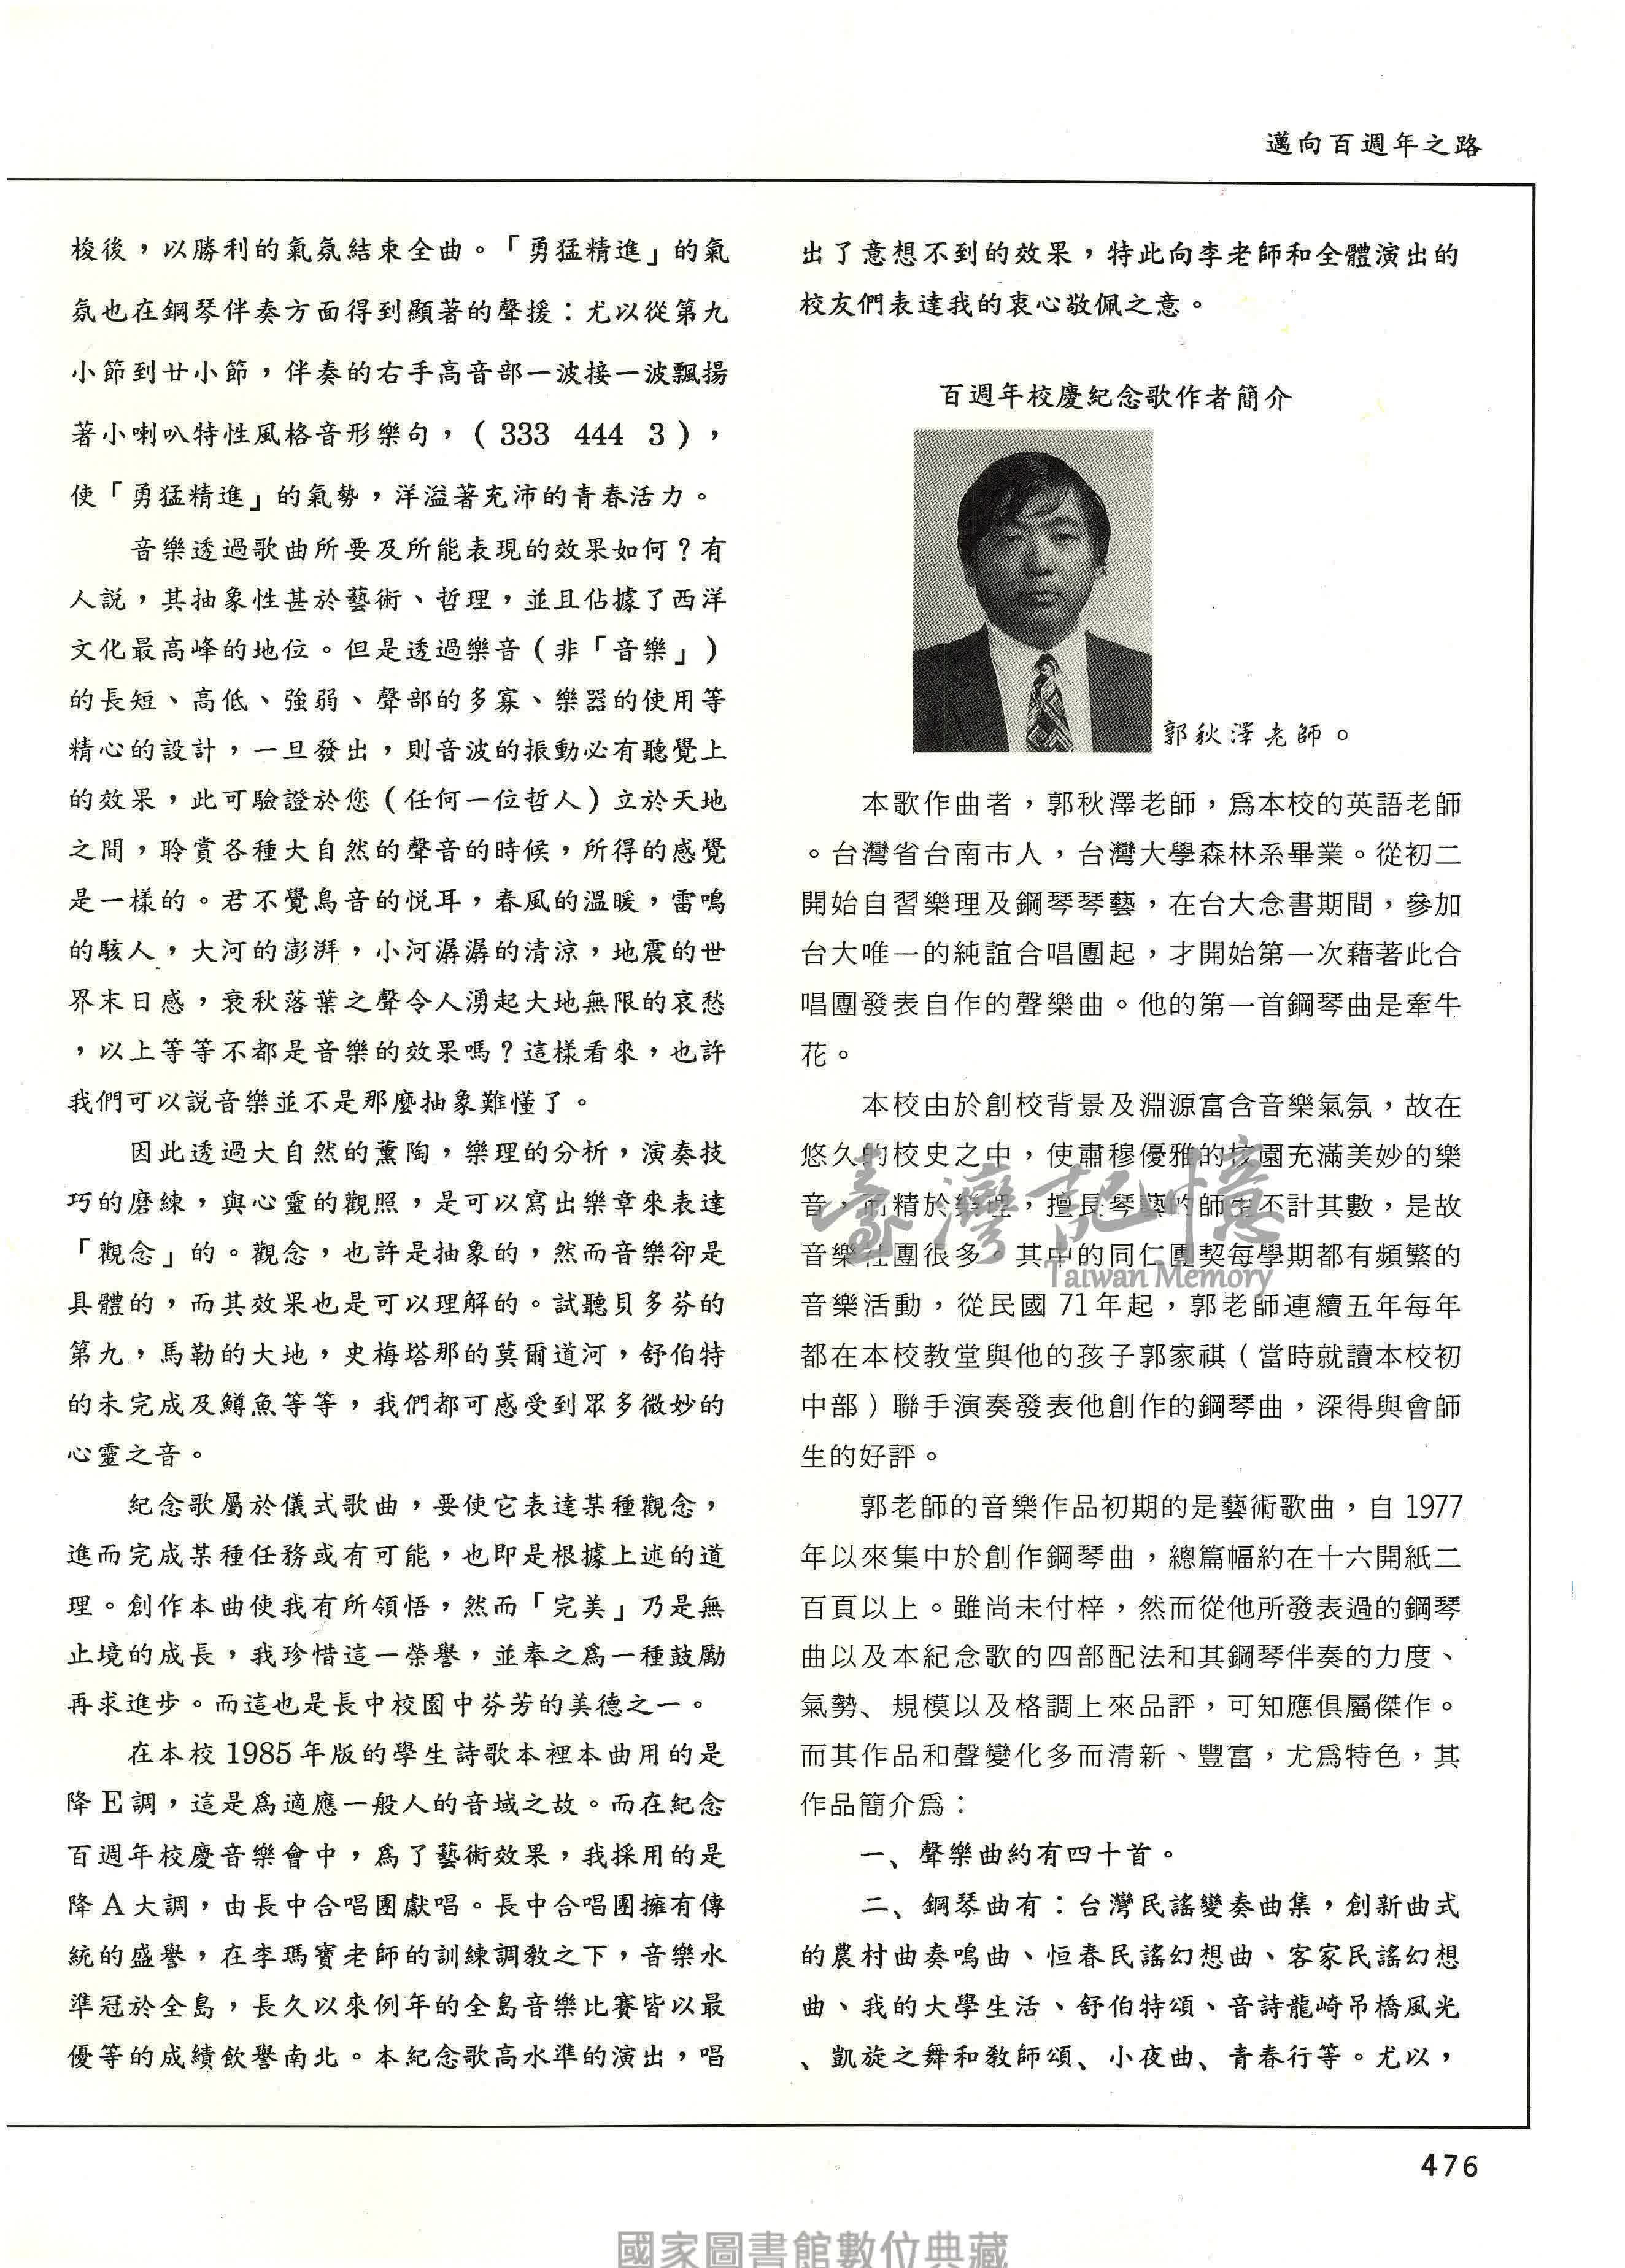 邁向百週年之路
梭後，以勝利的氣氛結束全曲。「勇猛精進」的氣
氛也在鋼琴伴奏方面得到顯著的聲援：尤以從第九
小節到廿小節，伴奏的右手高音部一波接一波飄揚
著小喇叭特性風格音形樂句，（333 444 3），
使「勇猛精進」的氣勢，洋溢著充沛的青春活力。
音樂透過歌曲所要及所能表現的效果如何？有
人說，其抽象性甚於藝術、哲理，並且佔據了西洋
文化最高峰的地位。但是透過樂音（非「音樂」）
的長短、高低、強弱、聲部的多寡、樂器的使用等
精心的設計，一旦發出，則音波的振動必有聽覺上
的效果，此可驗證於您（任何一位哲人）立於天地
之間，聆賞各種大自然的聲音的時候，所得的感覺
是一樣的。君不覺鳥音的悅耳，春風的溫暖，雷鳴
的駭人，大河的澎湃，小河潺潺的清涼，地震的世
界末日感，衰秋落葉之聲令人湧起大地無限的哀愁
，以上等等不都是音樂的效果嗎？這樣看來，也許
我們可以說音樂並不是那麼抽象難懂了。
因此透過大自然的薰陶，樂理的分析，演奏技
巧的磨練，與心靈的觀照，是可以寫出樂章來表達
「觀念」的。觀念，也許是抽象的，然而音樂卻是
具體的，而其效果也是可以理解的。試聽貝多芬的
第九，馬勒的大地，史梅塔那的莫爾道河，舒伯特
的未完成及鱒魚等等，我們都可感受到眾多微妙的
心靈之音。
紀念歌屬於儀式歌曲，要使它表達某種觀念，
進而完成某種任務或有可能，也即是根據上述的道
理。創作本曲使我有所領悟，然而「完美」乃是無
止境的成長，我珍惜這一榮譽，並奉之爲一種鼓勵
再求進步。而這也是長中校園中芬芳的美德之一。
在本校1985年版的學生詩歌本裡本曲用的是
降E調，這是爲適應一般人的音域之故。而在紀念
百週年校慶音樂會中，爲了藝術效果，我採用的是
降A大調，由長中合唱團獻唱。長中合唱團擁有傳
統的盛譽，在李瑪寶老師的訓練調教之下，音樂水
準冠於全島，長久以來例年的全島音樂比賽皆以最
優等的成績飲譽南北。本紀念歌高水準的演出，唱
出了意想不到的效果，特此向李老師和全體演出的
校友們表達我的衷心敬佩之意。
百週年校慶紀念歌作者簡介
郭秋澤老師。
本歌作曲者，郭秋澤老師，爲本校的英語老師
。台灣省台南市人，台灣大學森林系畢業。從初二
開始自習樂理及鋼琴琴藝，在台大念書期間，參加
台大唯一的純誼合唱團起，才開始第一次藉著此合
唱團發表自作的聲樂曲。他的第一首鋼琴曲是牽牛
花。
本校由於創校背景及淵源富含音樂氣氛，故在
悠久的校史之中，使肅穆優雅的校園充滿美妙的樂
音，而精於樂理，擅長琴藝的師生不計其數，是故
音樂社團很多。其中的同仁團契每學期都有頻繁的
音樂活動，從民國71年起，郭老師連續五年每年
都在本校教堂與他的孩子郭家祺（當時就讀本校初
中部）聯手演奏發表他創作的鋼琴曲，深得與會師
生的好評。
郭老師的音樂作品初期的是藝術歌曲，自1977
年以來集中於創作鋼琴曲，總篇幅約在十六開紙二
百頁以上。雖尚未付梓，然而從他所發表過的鋼琴
曲以及本紀念歌的四部配法和其鋼琴伴奏的力度、
氣勢、規模以及格調上來品評，可知應俱屬傑作。
而其作品和聲變化多而清新、豐富，尤爲特色，其
作品簡介爲：
一、聲樂曲約有四十首。
二、鋼琴曲有：台灣民謠變奏曲集，創新曲式
的農村曲奏鳴曲、恒春民謠幻想曲、客家民謠幻想
曲、我的大學生活、舒伯特頌、音詩龍崎吊橋風光
、凱旋之舞和教師頌、小夜曲、青春行等。尤以，
臺灣記憶
Taiwan Memory
476
國家圖書館數位典藏